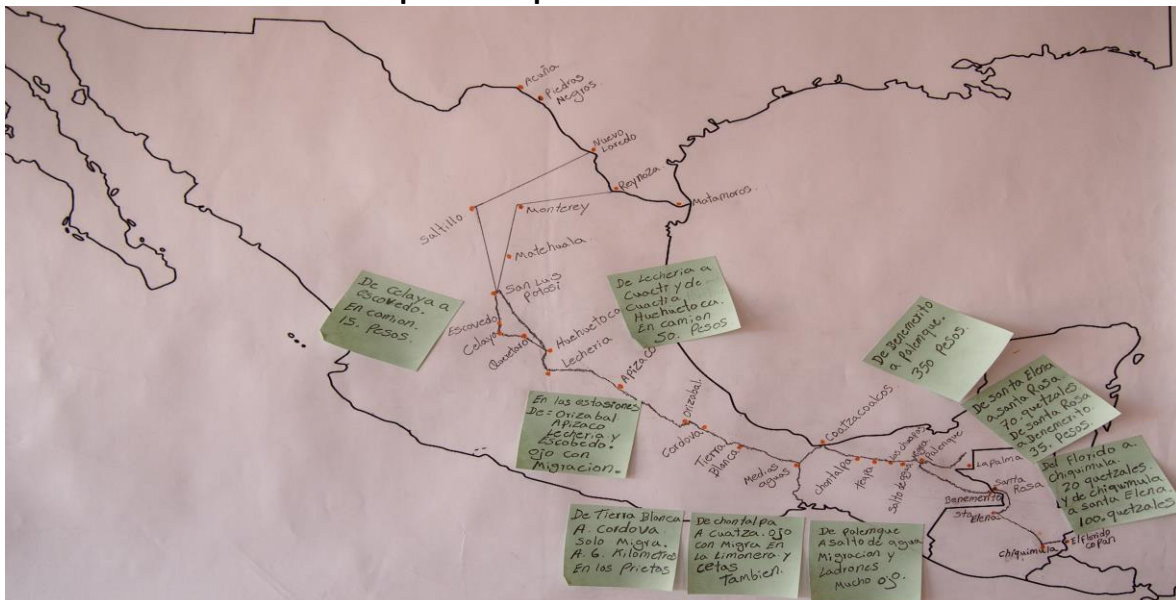 Acuña
Piedras
Negras.
Nuevo
Laredo
Reynoza.
Matamoros.
Saltillo
Monterey
Matehuala
San Luis
Potosi
Escovedo
Celaya
Queretaro
Huehuetoca
Lecheria
Apizaco
Orizabal.
Cordova
Tierra
Blanca
Medias
aguas
Coatzacoalcos.
Chontalpa
Salto de agua
Palenque
La Palma
Santa
Rosa
Benemerito
Sta
Elena
Chiquimula
El florido
copan
De Celaya a
escovedo.
En camion.
15. Pesos.
De Lecheria a
Cuacti y de
Cuactia
Huehuetoca.
En camion
50. Pesos
En las estasiones
De = Orizabal
Apizaco
Lecheria y
Escobedo.
ojo con
Migracion.
De Benemerito
a Palemque.
350 Pesos.
De Santa Elena
a santa Rosa
70. quetzales
De santa Rosa
a Benemerito.
35. Pesos.
Del florido a
Chiquimula.
20 quetzales.
y de chiquimula
a santa Elena.
100. quetzales
De Tierra Blanca
A. Cordova.
Solo Migra.
A. 6. Kilometros
En las Prietas
De chontalpa
A Cuatza. ojo
con Migra En
La Limonera. y
cetas
Tambien.
De palemque
A salto de agua
Migracion y
Ladrones
Mucho ojo.